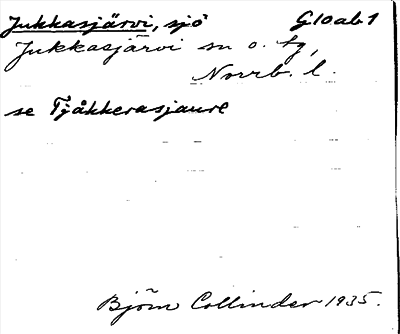 Jukkasjärvi, sjö G10ab1
Jukkasjärvi sn o. tg,
Norrb. l.
se Tjåkkerasjaure
Björn Collinder 1935.